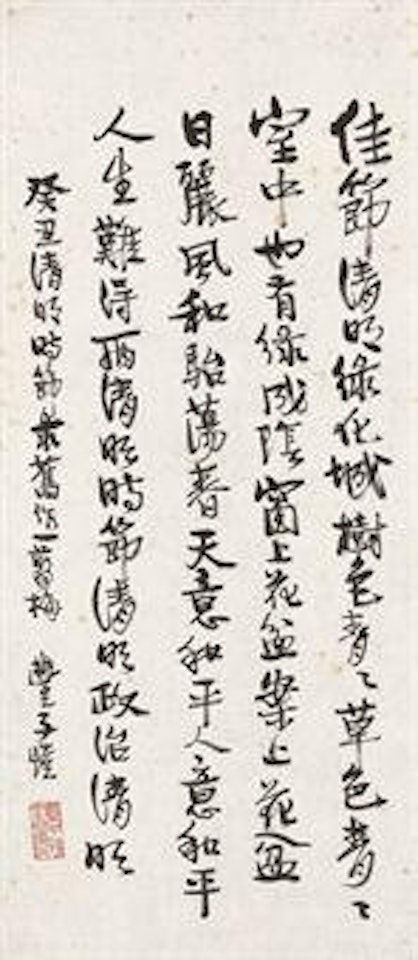 佳節清明綠化城樹色青〻草色青〻
室中也有綠成陰窗上花盆案上花盆
日麗風和駘蕩春天意和平人意和平
人生難得兩清明時節清明政治清明
癸丑清明時節录舊作一剪梅 豐子愷